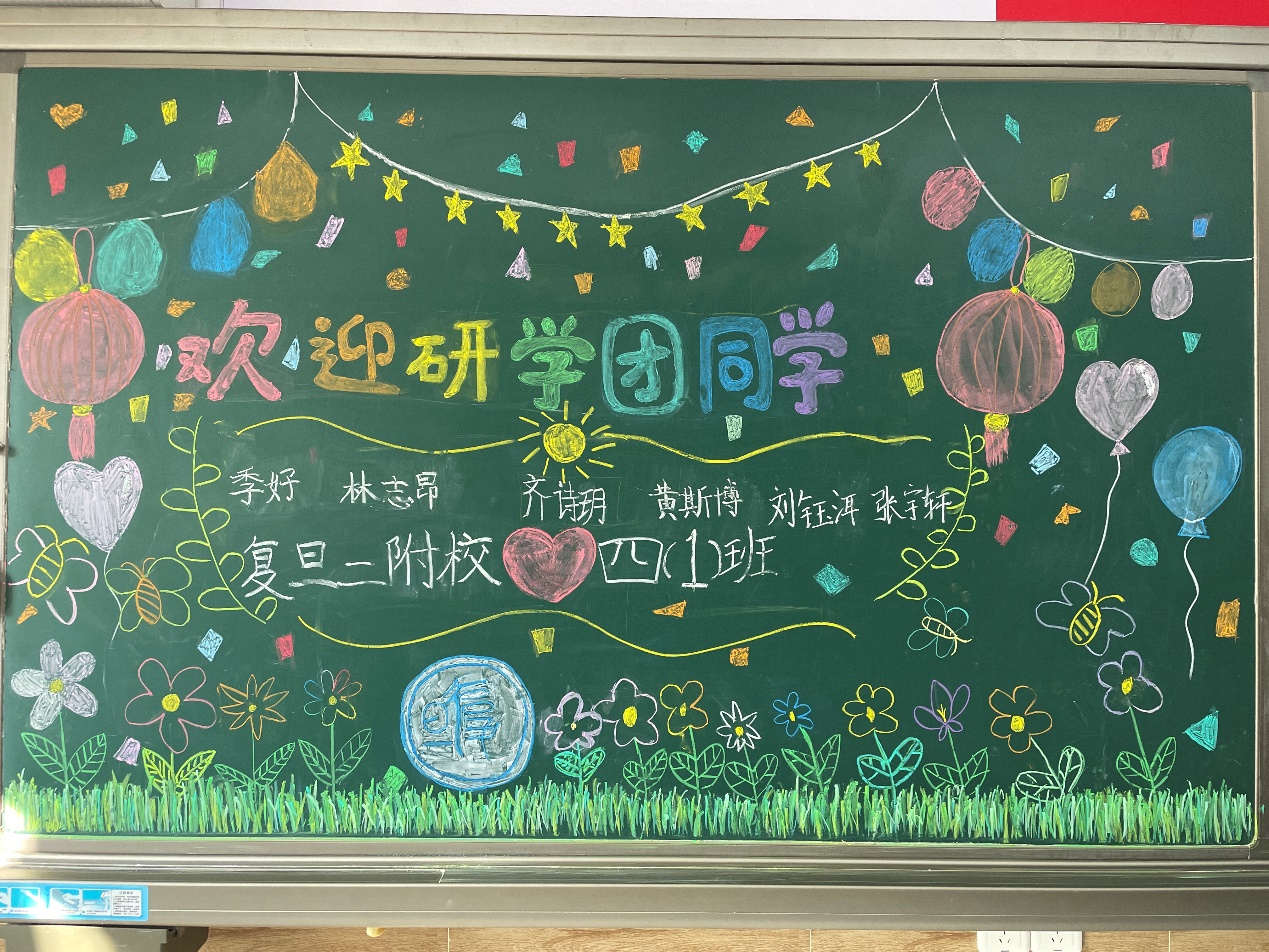 欢迎研学团同学
季好 林志昂 齐诗玥 黄斯博 刘钰洱 张宇轩
复旦二附校 四(1)班